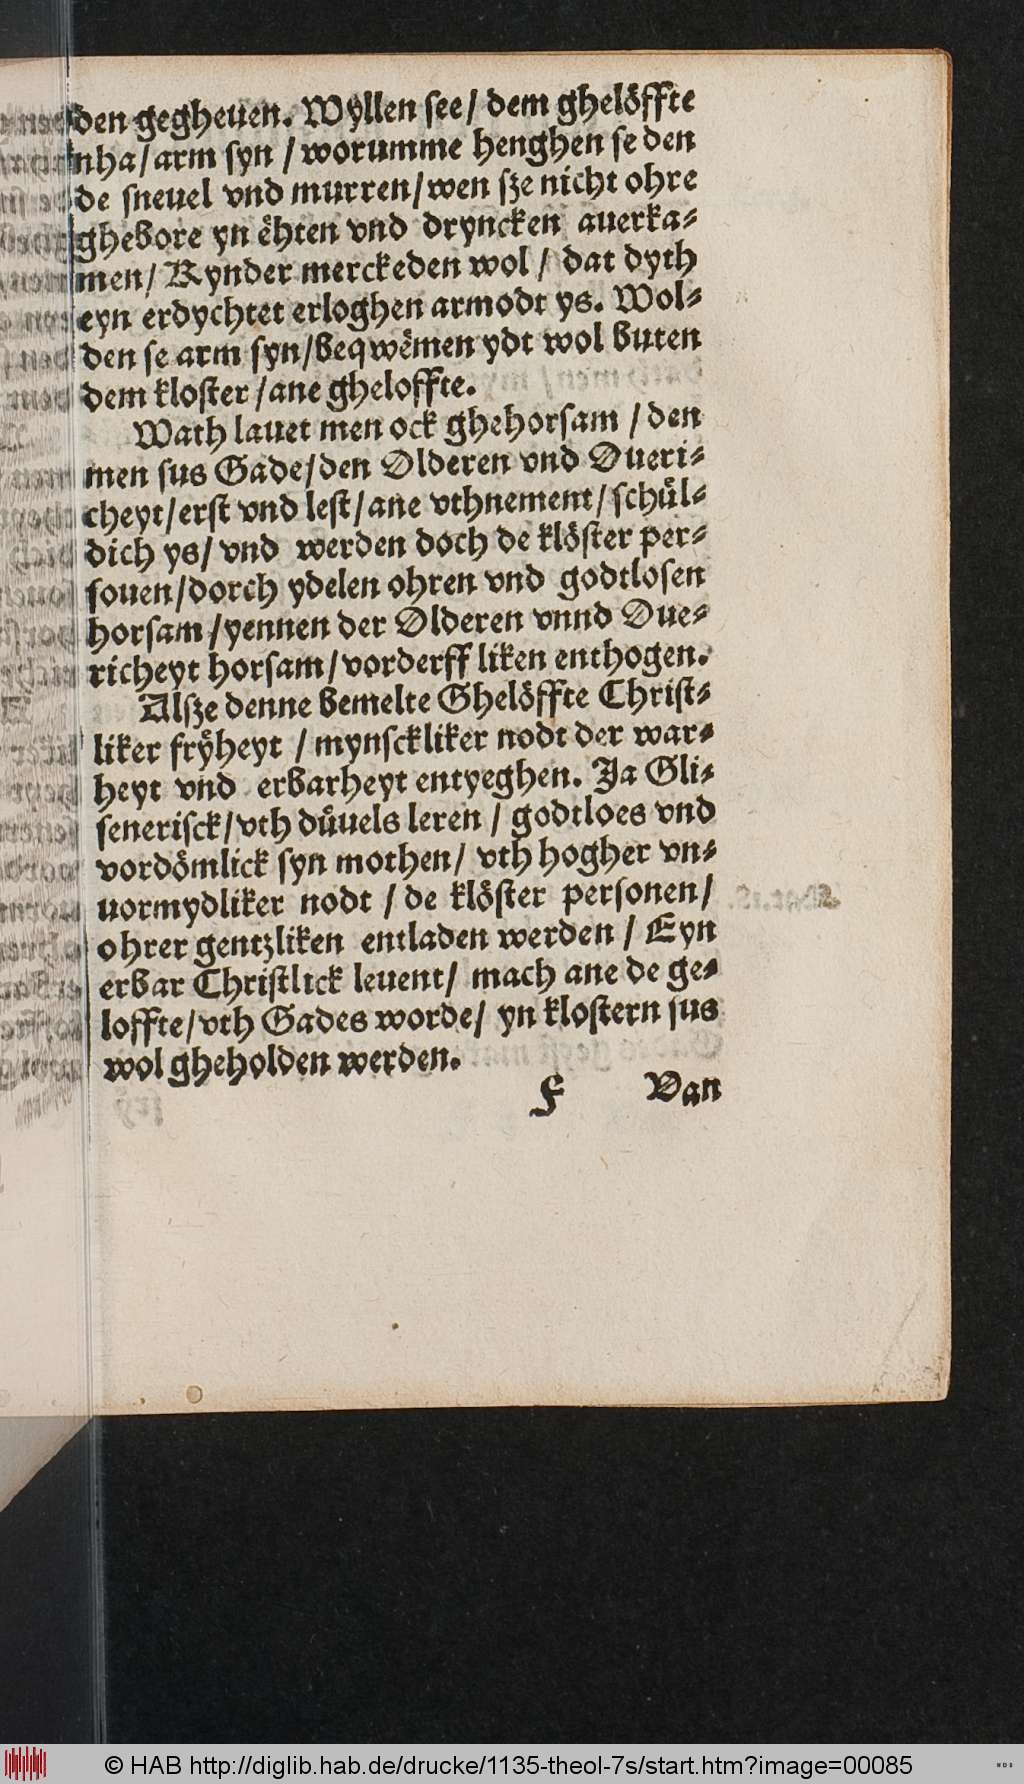 den gegheuen. Wyllen see/ dem ghelöffte
nha/arm syn/worumme henghen se den
de sneuel vnd murren/wen sze nicht ohre
ghebore yn ëhten vnd dryncken auerka-
men/ Kynder merckeden wol/ dat dyth
eyn erdychtet erloghen armodt ys. Wol-
den se arm syn/beqwëmen ydt wol buten
dem kloster/ane gheloffte.
Wath lauet men ock ghehorsam/den
men sus Gade/den Olderen vnd Oueri-
cheyt/erst vnd lest/ane vthnement/schül-
dich ys/ vnd werden doch de klöster per-
souen/dorch ydelen ohren vnd godtlosen
horsam/yennen der Olderen vnnd Oue-
richeyt horsam/vorderffliken enthogen.
Alsze denne bemelte Ghelöffte Christ-
liker frÿheyt/mynsckliker nodt der war-
heyt vnd erbarheyt entyeghen. Ja Gli-
senerisck/vth düuels leren/ godtloes vnd
vordömlick syn mothen/ vth hogher vn-
uormydliker nodt/de klöster personen/
ohrer gentzliken entladen werden/ Eyn
erbar Christlick leuent/ mach ane de ge-
loffte/vth Gades worde/ yn klostern sus
wol gheholden werden.
F Van
© HAB http://diglib.hab.de/drucke/1135-theol-7s/start.htm?image=00085